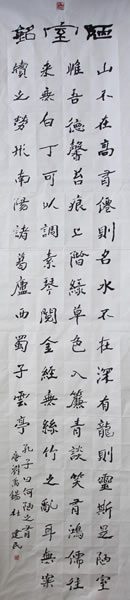 陋室銘
山不在高有僊則名水不在深有龍則靈斯是陋室
惟吾德馨苔痕上階綠草色入簾青談笑有鴻儒往
來無白丁可以調素琴閱金經無絲竹之亂耳無案
牘之勞形南陽諸葛廬西蜀子雲亭孔子曰何陋之有
唐劉禹錫 杜建民